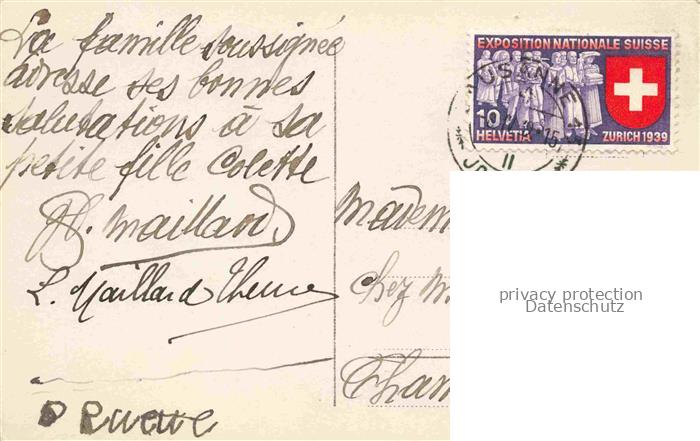 La famille soussignée
adresse ses bonnes
salutations à sa
petite fille Colette
Maillard
L. Maillard
EXPOSITION NATIONALE SUISSE
10
HELVETIA
ZURICH 1939
LAUSANNE 1
Chez M
privacy protection
Datenschutz